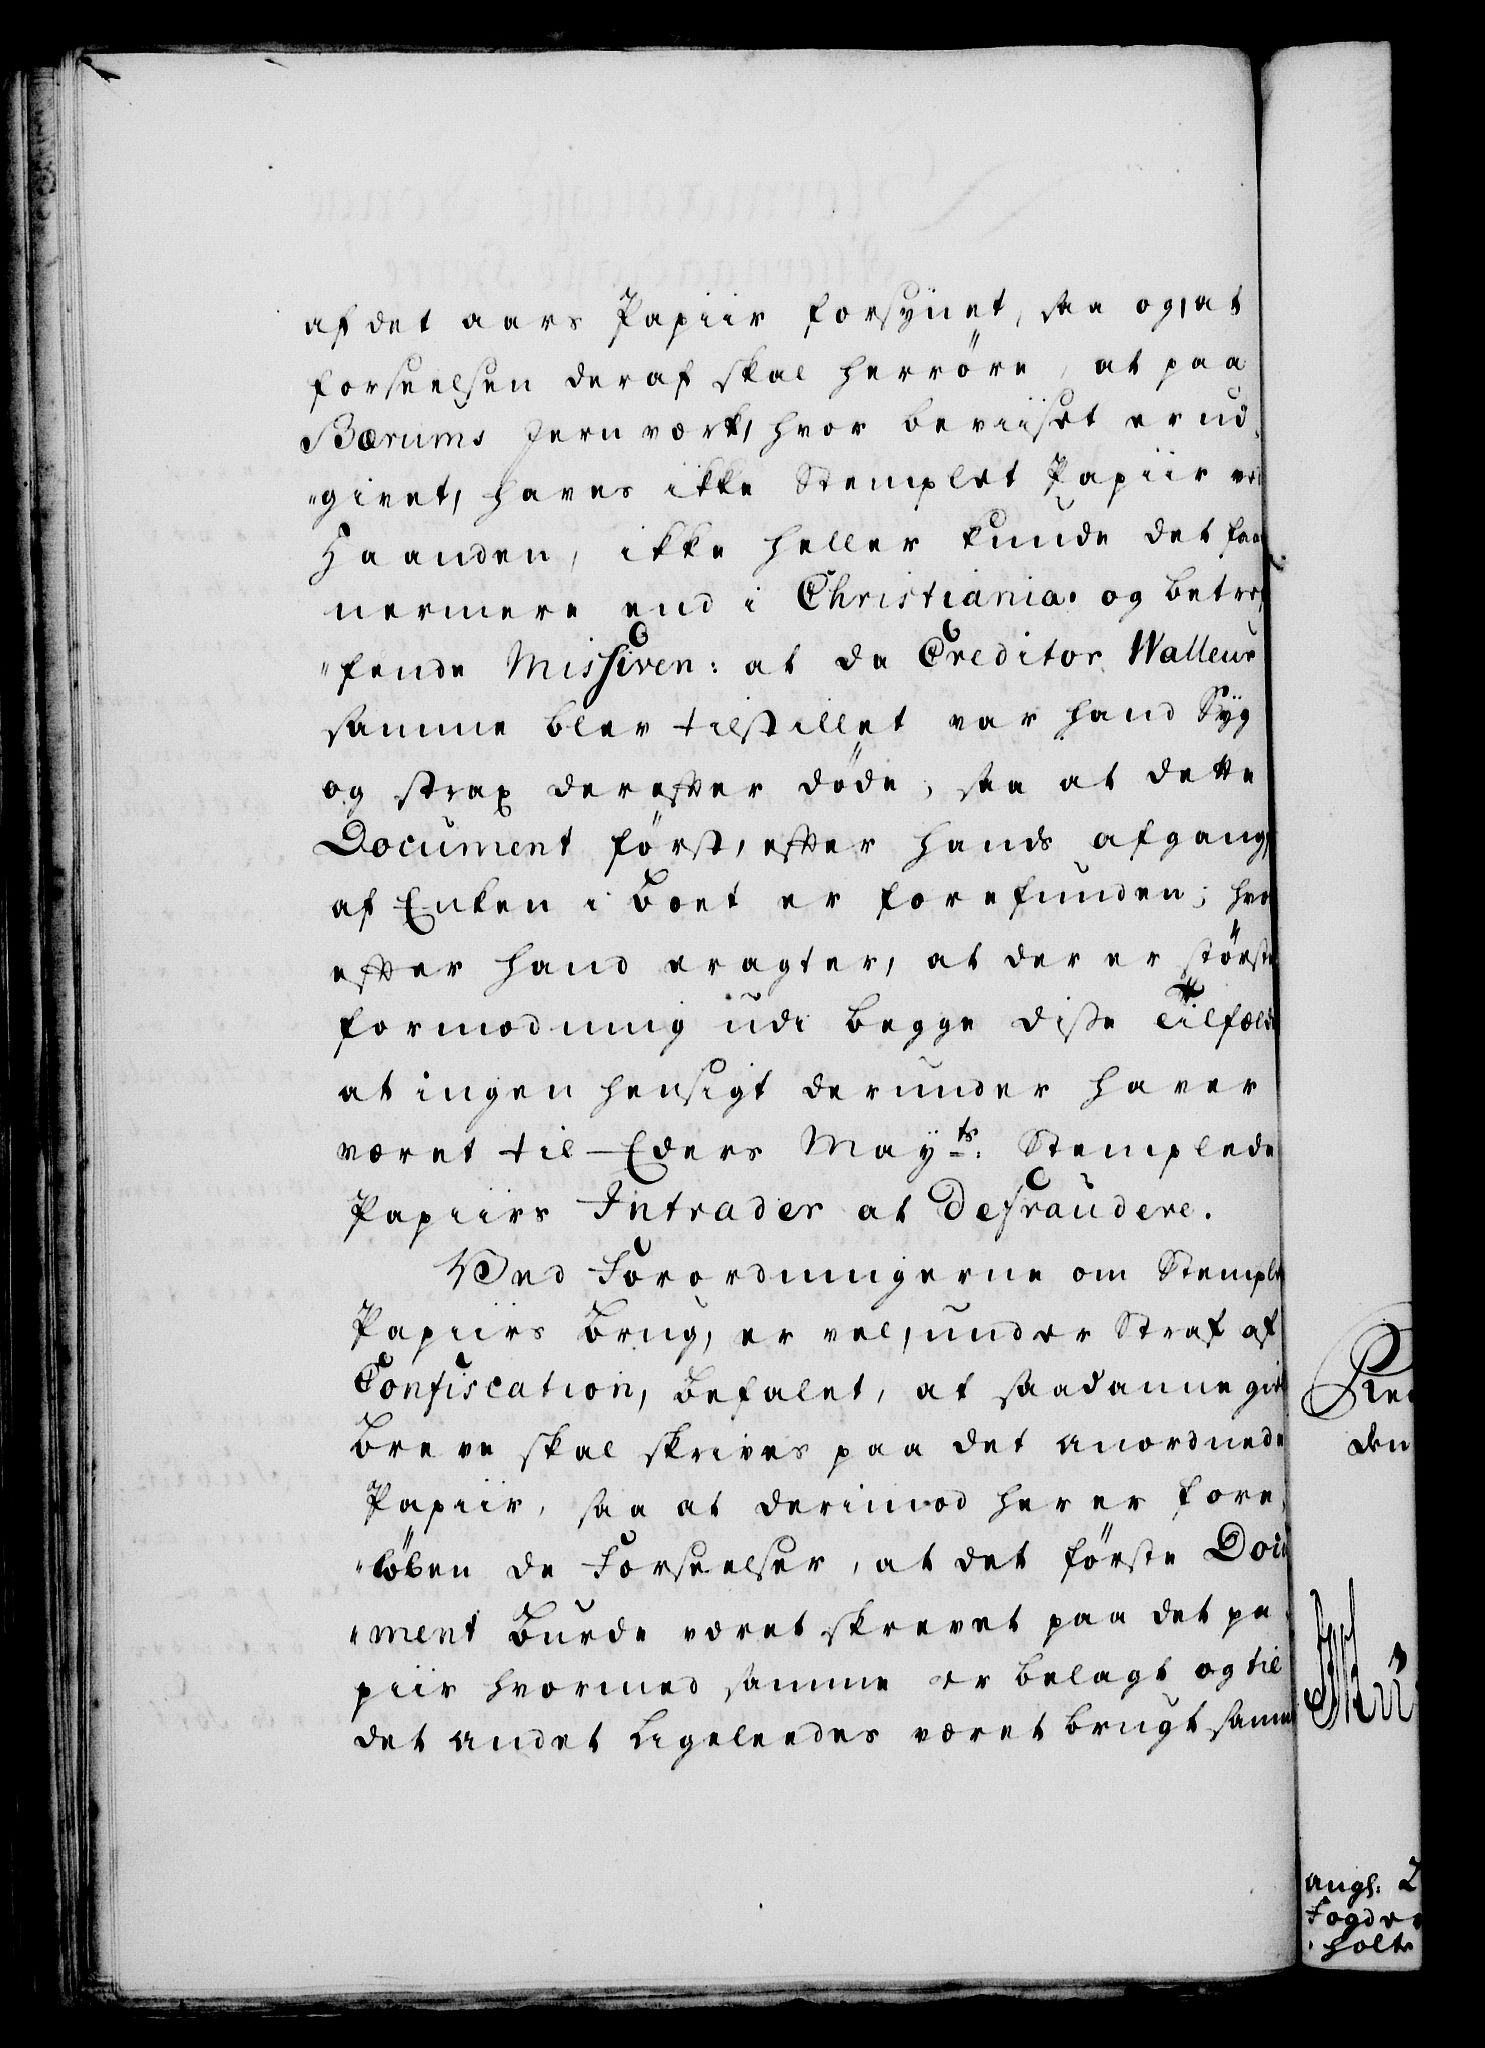 af det aars Papiir forsÿnet, saa og, at
forseelsen deraf skal herröre, at paa
Bærums Jernværk, hvor beviiset er ud-
"givet, haves ikke Stemplet Papiir ved
Haanden, ikke heller kunde det faae
nermere end i Christiania. og betref
"fende Missiven: at da Creditor Walleur
samme blev tilstillet var hand Sÿg
og strax derefter döde, saa at dette
Document först, efter hands afgang,
af Enken i boet er forefunden; hvor
efter hand eragter, at der er störste
formodning udi begge disse Tilfælde
at ingen hensigt derunder haver
været til Eders Maÿts. Stemplede
Papiirs Intrader at Defraudere.
Ved Forordningerne om Stemplet
Papiirs Brug, er vel, under Straf af
Confiscation, befalet, at saadanne
Breve skal skrives paa det anordnede
Papiir, saa at derimod her er fore
"löben de Forseelser, at det förste Docu
"ment Burde været skrevet paa det pa-
piir hvormed samme er belagt og til
det andet Ligeleedes været brugt samme
den
angl: 2
Fogde
holt